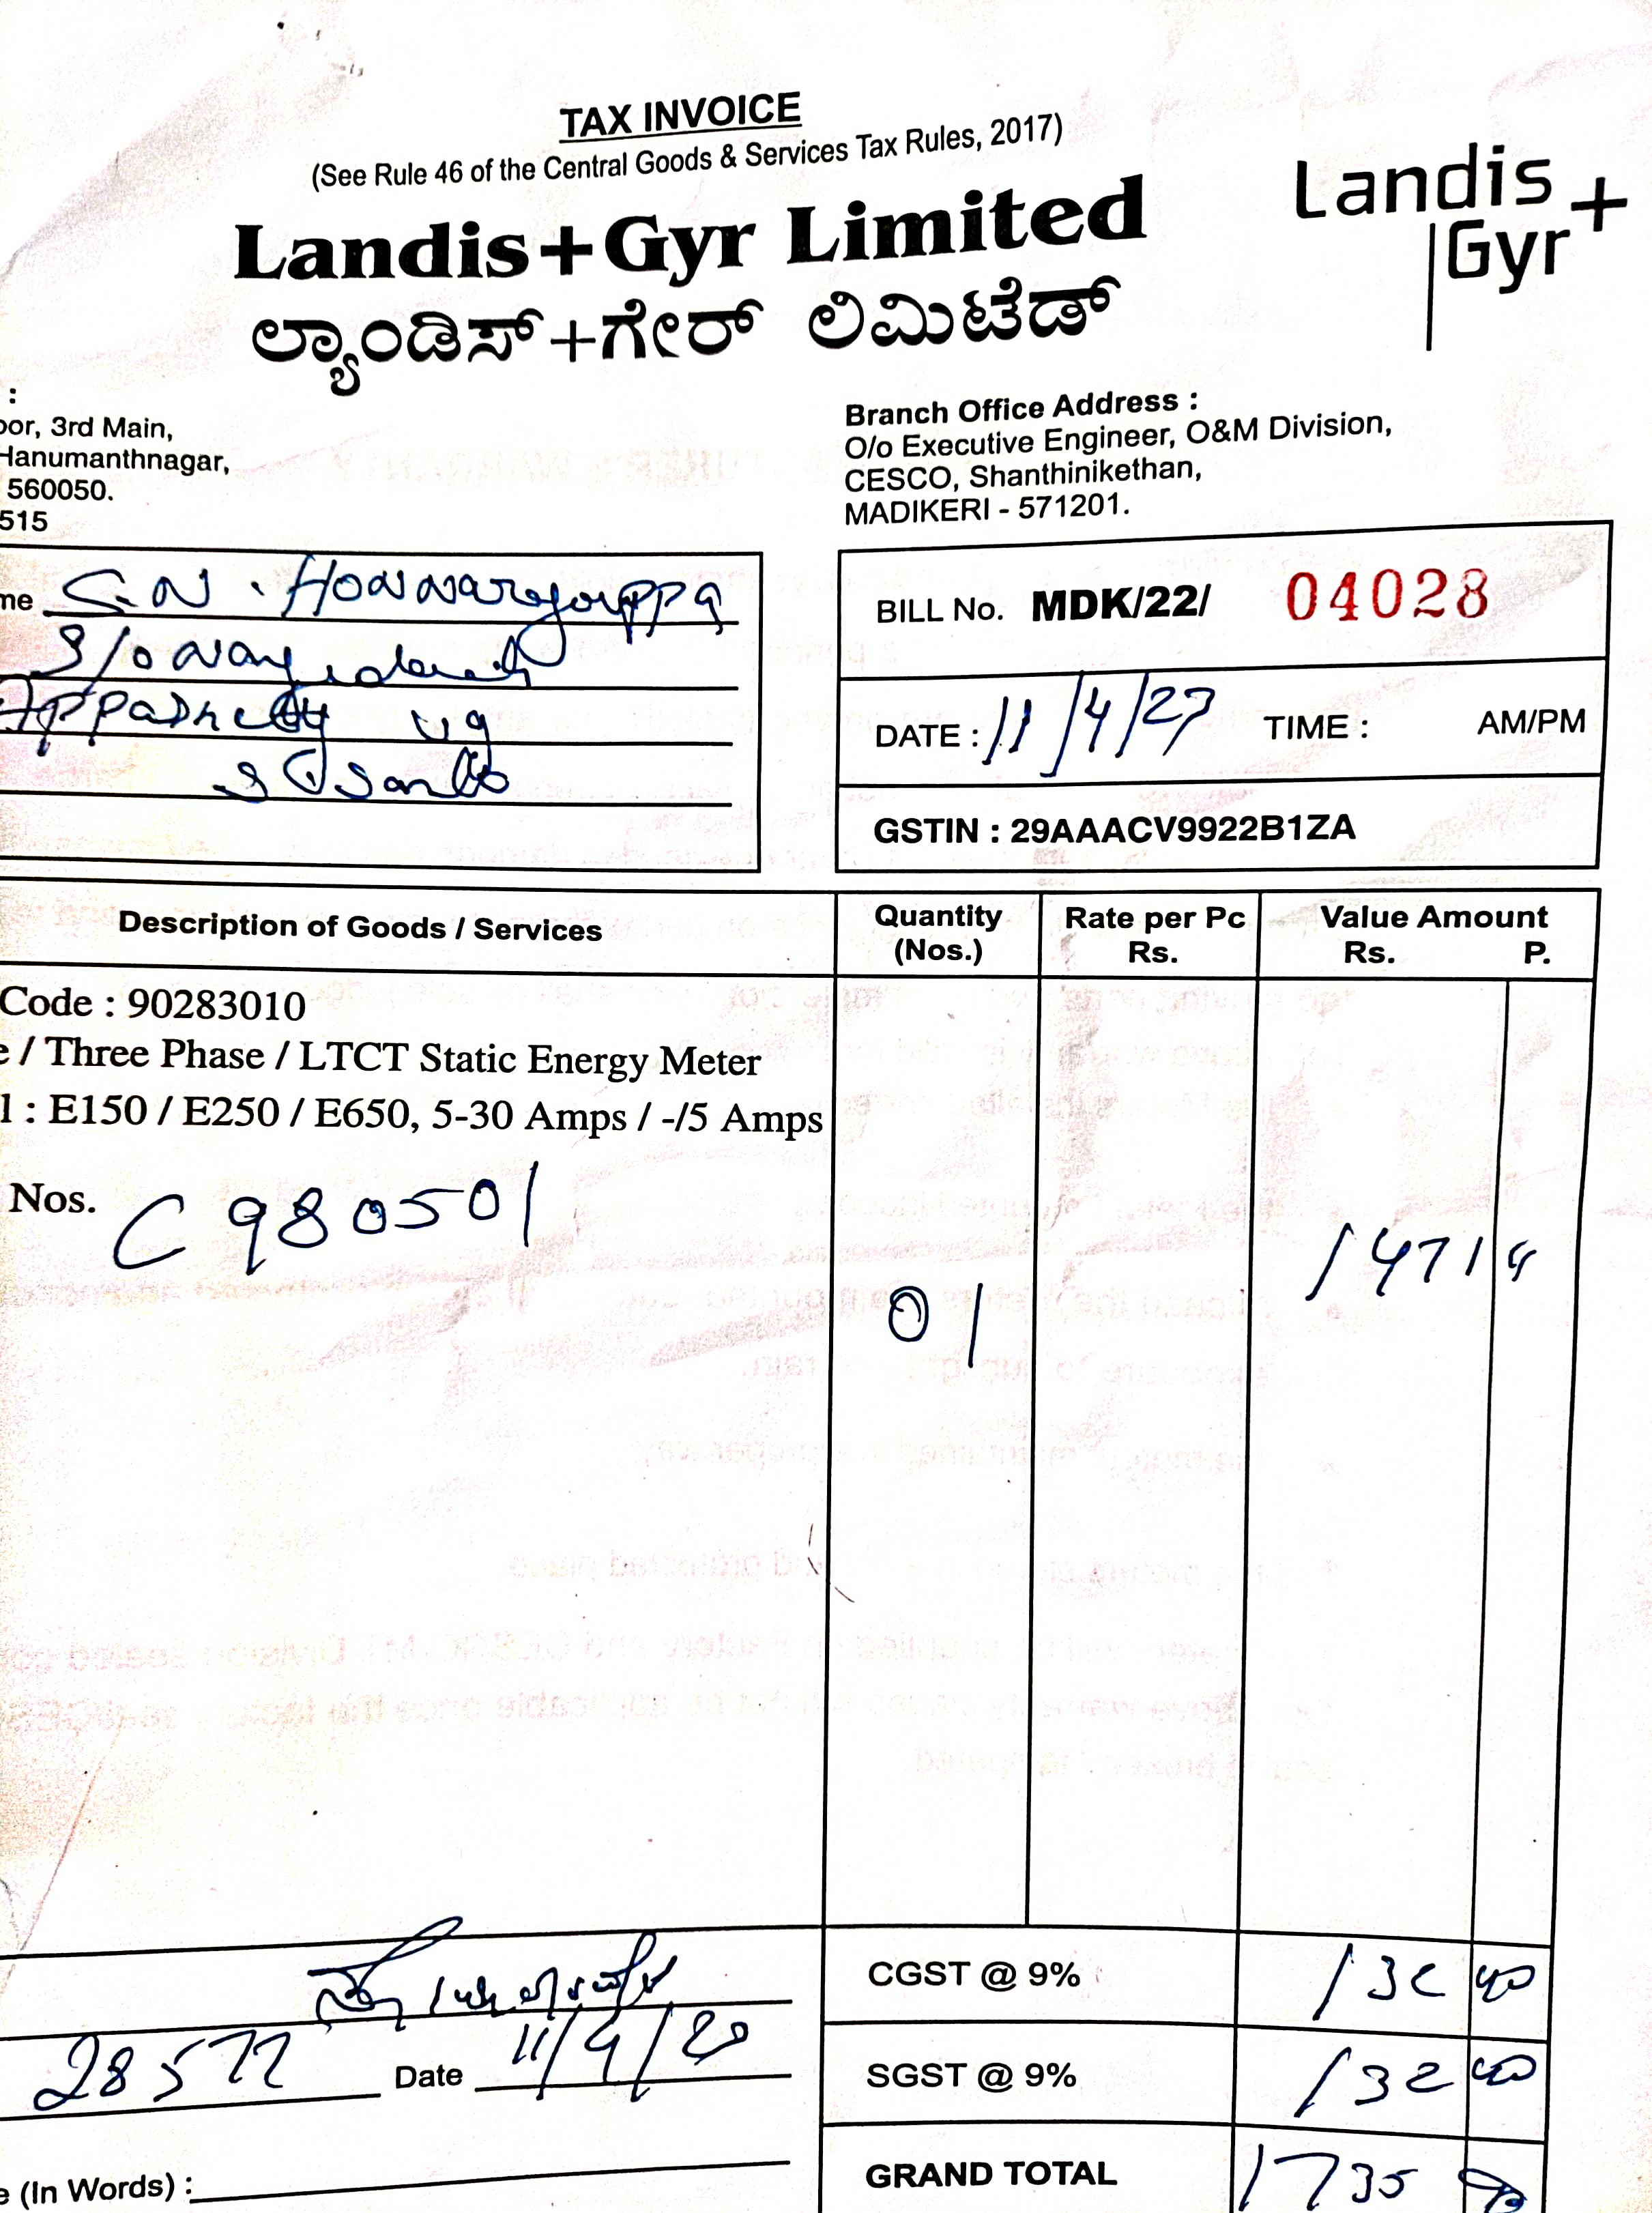 TAX INVOICE
(See Rule 46 of the Central Goods & Services Tax Rules, 2017)
Landis+Gyr Limited
ಲ್ಯಾಂಡಿಸ್+ಗೇರ್ ಲಿಮಿಟೆಡ್
Landis
Gyr+
:
oor, 3rd Main,
Hanumanthnagar,
560050.
515
Branch Office Address :
O/o Executive Engineer, O&M Division,
CESCO, Shanthinikethan,
MADIKERI - 571201.
me
S/o
BILL No. MDK/22/ 04028
DATE : 11/4/27 TIME : AM/PM
GSTIN : 29AAACV9922B1ZA
Description of Goods / Services Quantity (Nos.) Rate per Pc Rs. Value Amount Rs. P.
Code : 90283010
e / Three Phase / LTCT Static Energy Meter
l : E150 / E250 / E650, 5-30 Amps / -/5 Amps
Nos. C 980501
01 1471
CGST @ 9% 132 40
28577 Date 11/4/20
SGST @ 9% 132 40
GRAND TOTAL 1735
e (In Words) :